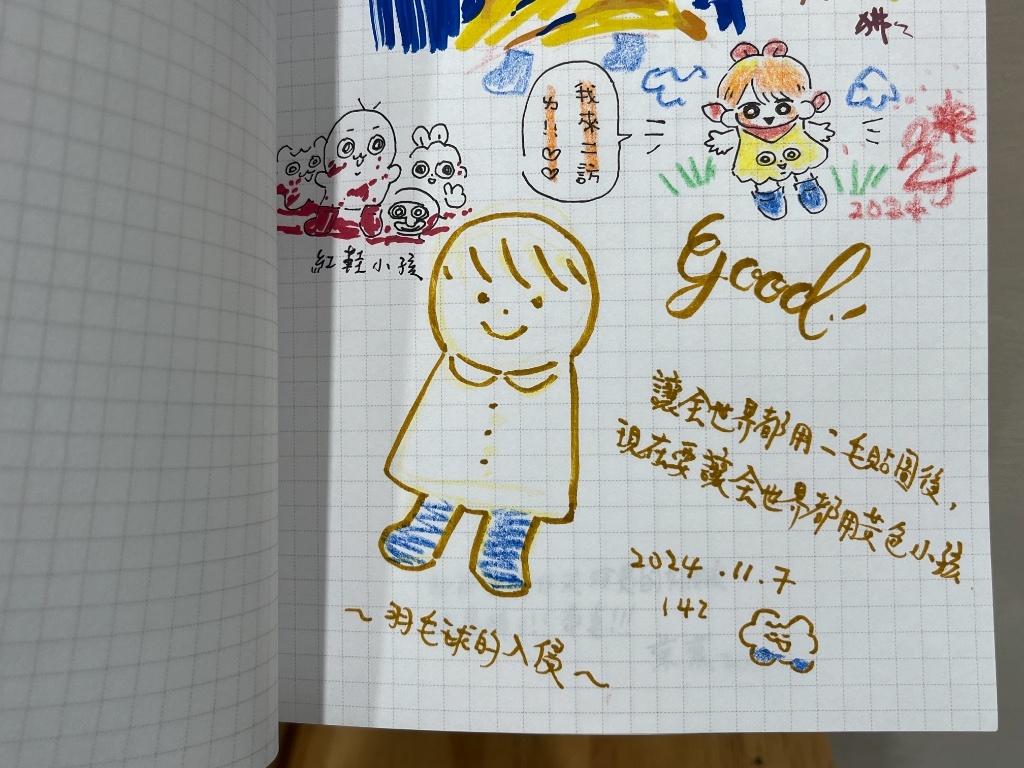 我來二訪
ㄌ!!♡♡
紅鞋小孩
2024
Good!
讓全世界都用二毛貼圖後,
現在要讓全世界都用黃色小孩
2024.11.7
142
~羽毛球的入侵~